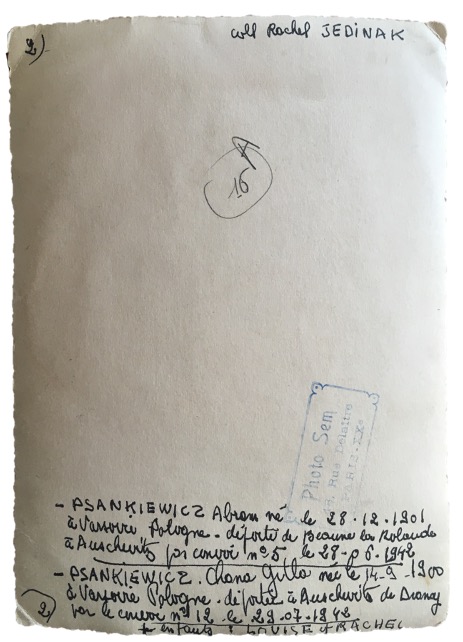 2)
coll Rachel JEDINAK
A
16
Photo Sem
Rue Delaitre
PARIS-XXe
- PSANKIEWICZ Abram né le 28.12.1901
à Varsovie Pologne - déporté de Beaune la Rolande
à Auschwitz par convoi n°5 le 28-06-1942
- PSANKIEWICZ. Chana Gilla née le 14-9-1900
à Varsovie Pologne - déportée à Auschwitz de Drancy
par le convoi n°12 le 29.07.1942
2)
enfants : LOUISE & RACHEL